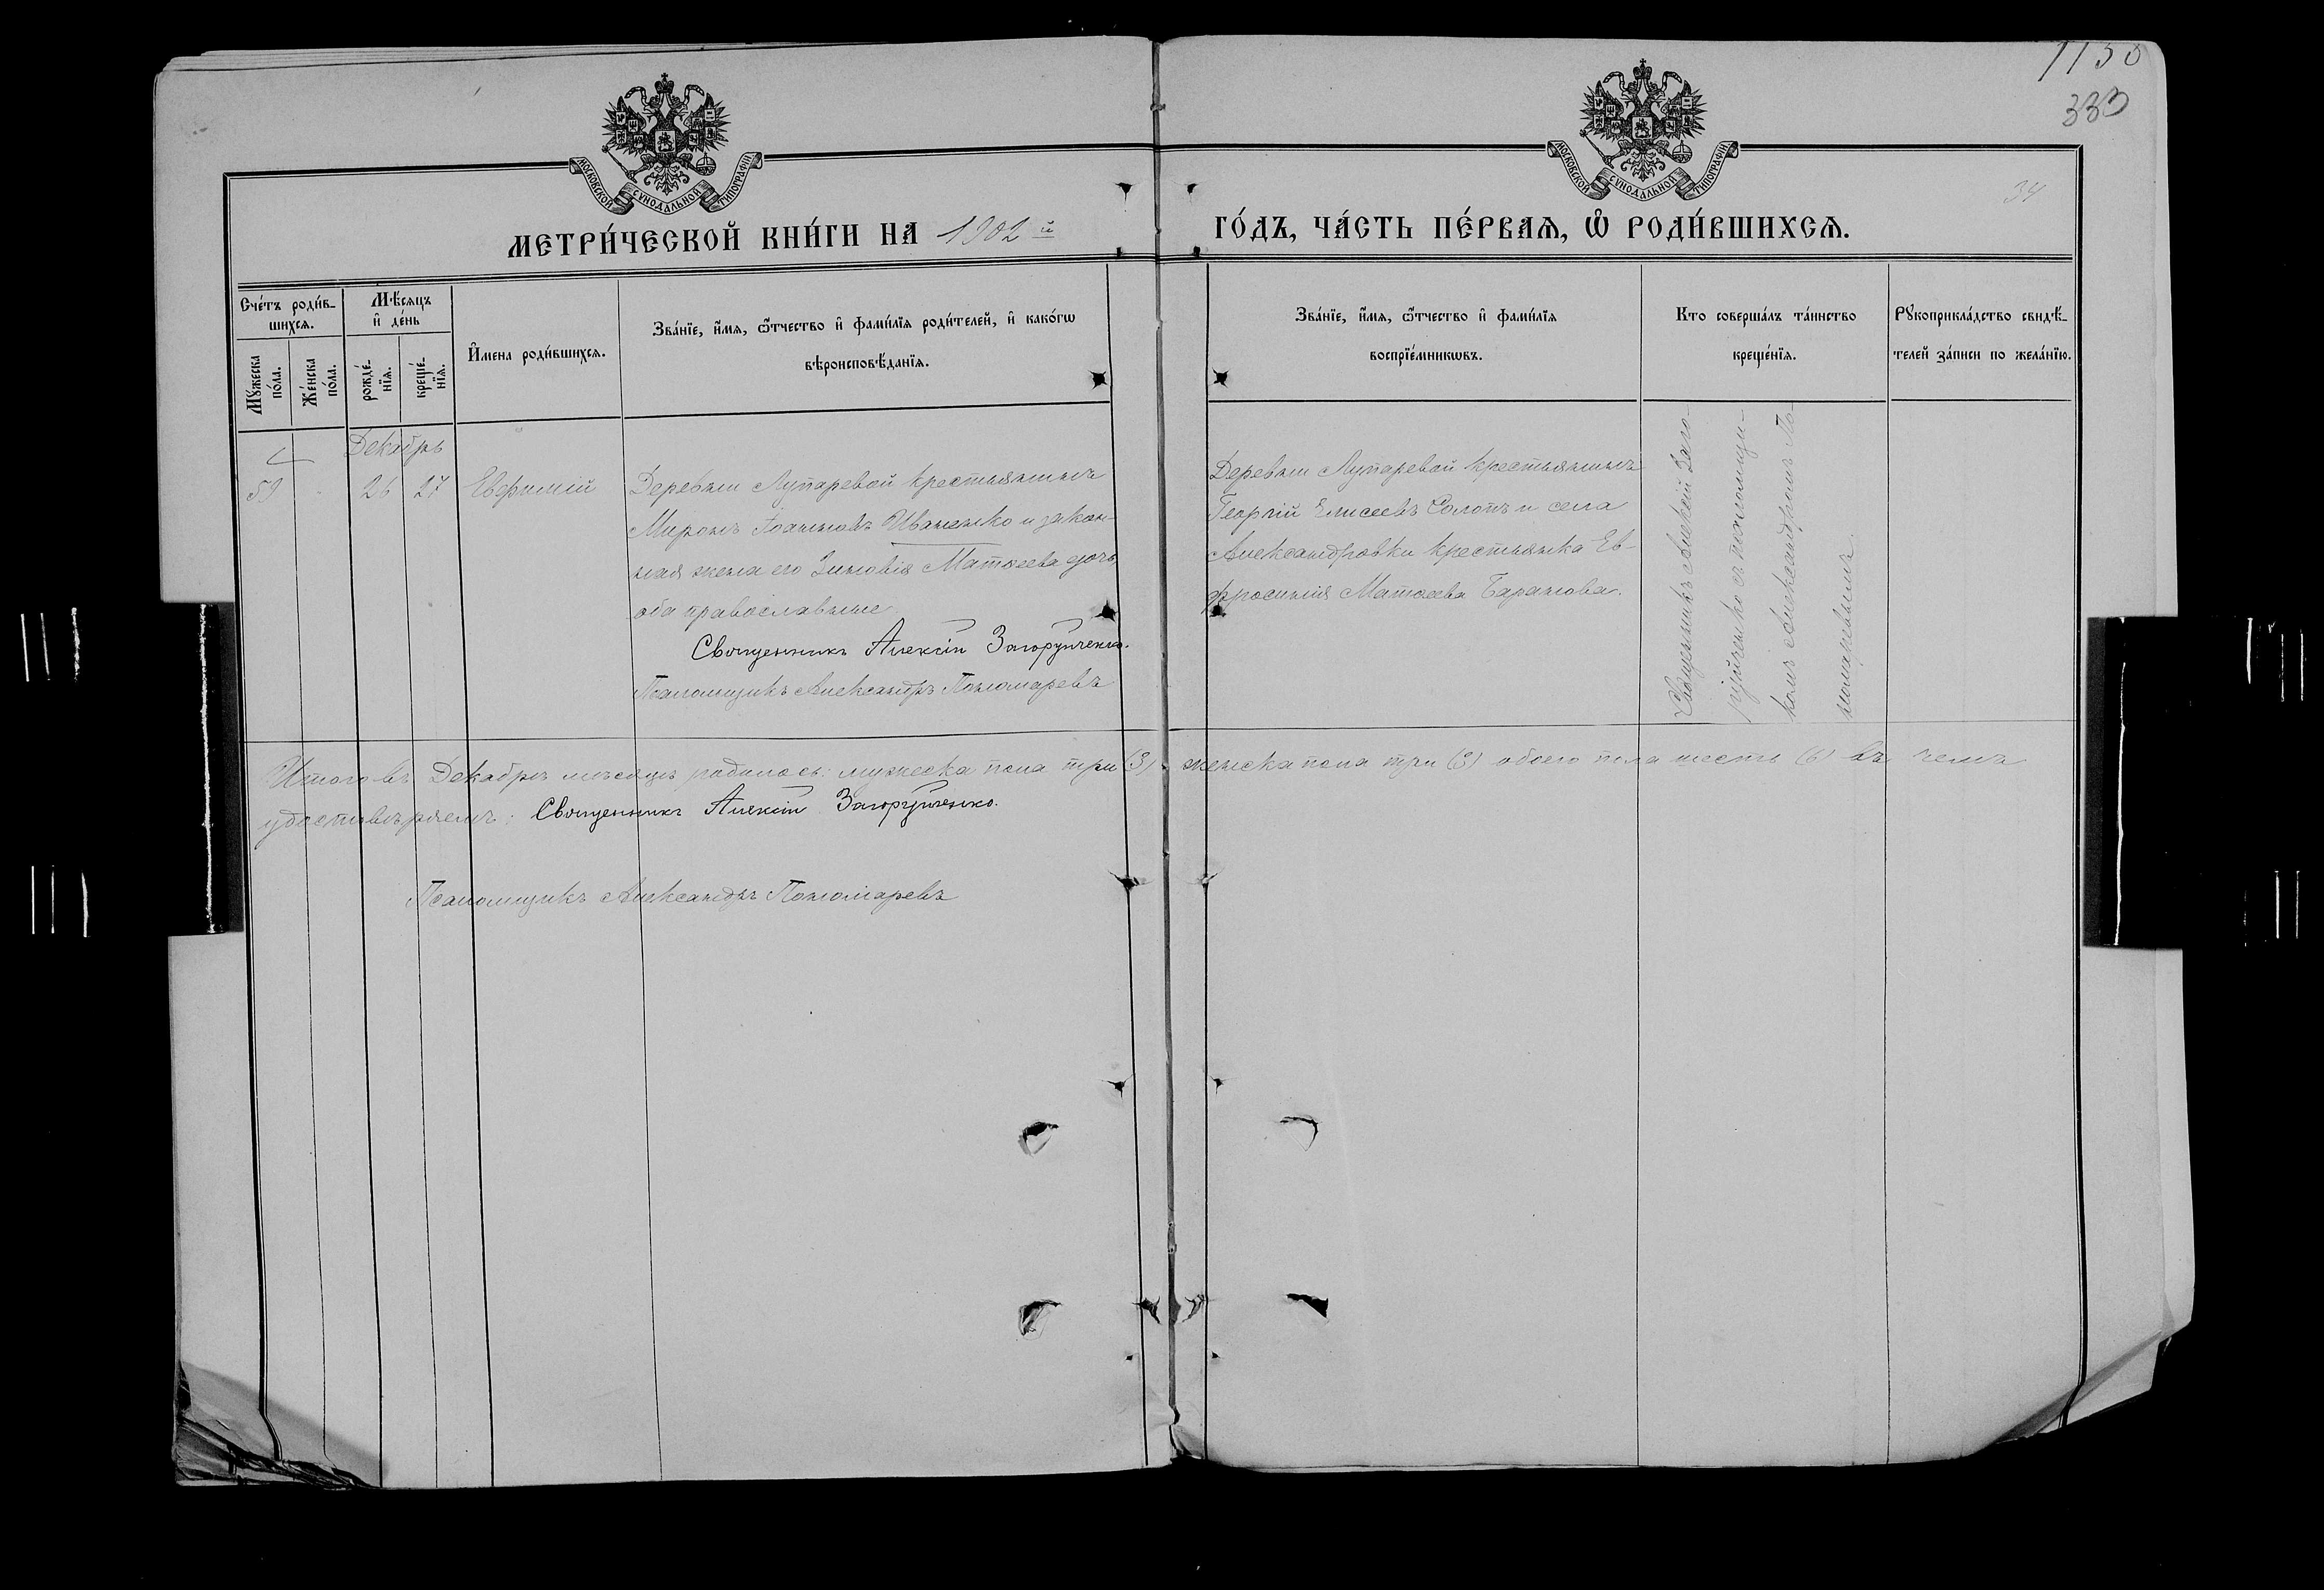 1133
333
34
МОСКОВСКОЙ СѴНОДАЛЬНОЙ ТИПОГРАФІИ
МОСКОВСКОЙ СѴНОДАЛЬНОЙ ТИПОГРАФІИ
МЕТРИ́ЧЕСКОЙ КНИ́ГИ НА 1902й
ГО́ДЪ, ЧА́СТЬ ПЕ́РВАѦ, Ѽ РОДИ́ВШИХСѦ.
Сче́тъ роди́в-
шихсѧ.
Мꙋ́жеска по́ла.
Же́нска по́ла.
Мѣ́сѧцъ
и҆ де́нь
рожде́-
нїѧ.
креще́-
нїѧ.
И҆мена роди́вшихсѧ.
Зва́нїе, и҆́мѧ, ѻ҆́тчество и҆ фами́лїѧ роди́телей, и҆ како́гѡ
вѣроисповѣ́данїѧ.
Зва́нїе, и҆́мѧ, ѻ҆́тчество и҆ фами́лїѧ
воспрїе́мникѡвъ.
Кто соверша́лъ та́инство
креще́нїѧ.
Рꙋкоприкла́дство свидѣ́-
телей за́писи по жела́нїю.
Декабрь
59 26 27 Евфимій
Деревни Лутаревой крестьянинъ
Миронъ Іоанновъ Иваненко и закон-
ная жена его Зиновія Матѳеева дочь,
оба православные
Священникъ Алексій Загоруйченко.
Псаломщикъ Александръ Пономаревъ
Деревни Лутаревой крестьянинъ
Георгій Елисеевъ Солопъ и села
Александровки крестьянка Ев-
фросинія Матѳеева Баранова.
Священникъ Алексій Заго-
руйченко съ псаломщи-
комъ Александромъ По-
номаревымъ.
Итого въ Декабрѣ мѣсяцѣ родилось: мужеска пола три (3) женска пола три (3) обоего пола шесть (6) въ чемъ
удостовѣряемъ: Священникъ Алексій Загоруйченко.
Псаломщикъ Александръ Пономаревъ